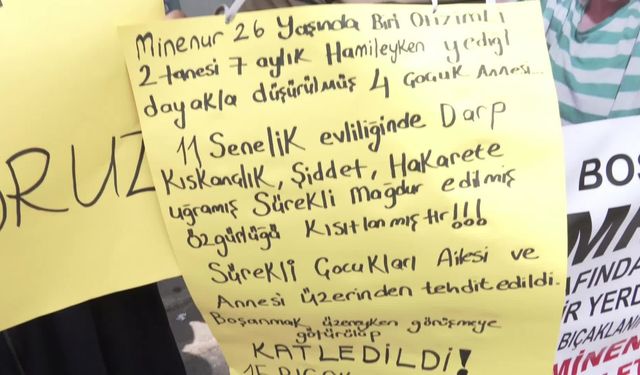 Minenur 26 Yaşında Biri Otizimli
2 tanesi 7 aylık Hamileyken yediği
dayakla düşürülmüş 4 Çocuk Annesi...
11 Senelik evliliğinde Darp
Kıskançlık, Şiddet, Hakarete
uğramış Sürekli Mağdur edilmiş
özgürlüğü Kısıtlanmıştır!!!
Sürekli Çocukları Ailesi ve
Annesi üzerinden tehdit edildi.
Boşanmak üzereyken görüşmeye
götürülüp
KATLEDİLDİ!
ORUZ
BOŞ
AFINDA
İR YERD
BIÇAKLANI
MİNEN